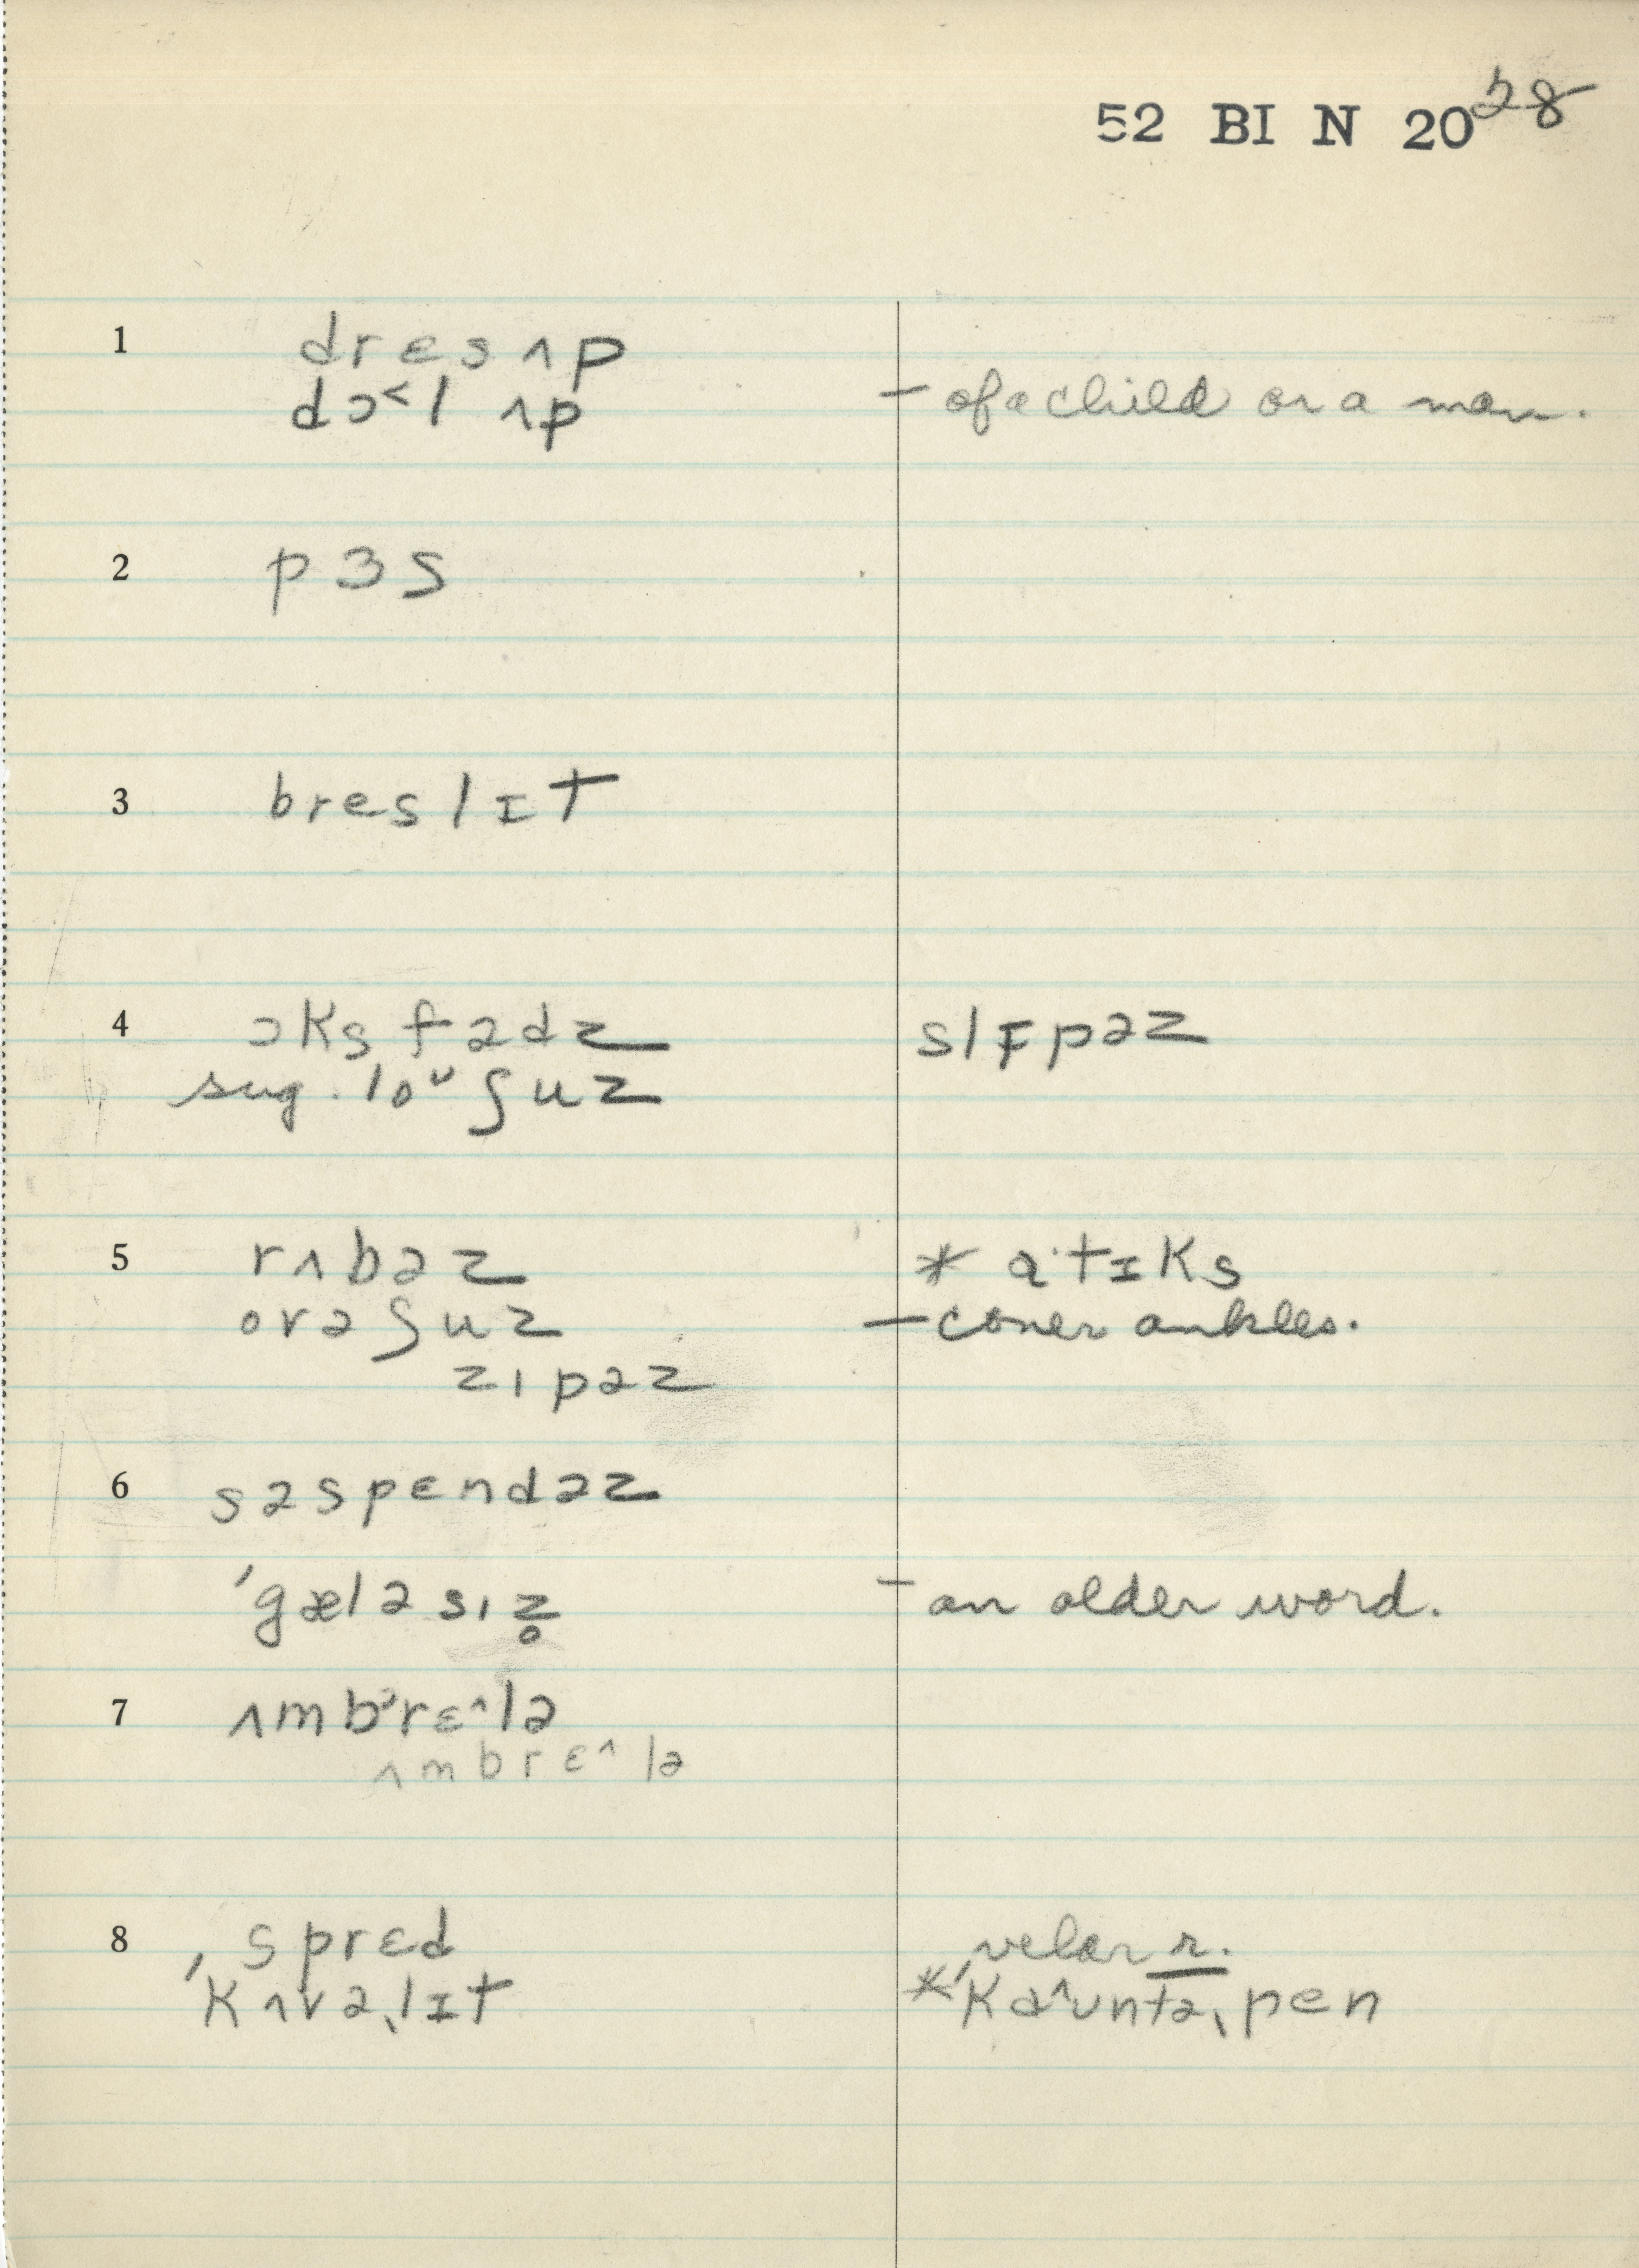 52 BI N 20 28
1 drɛs ʌp
dɔ˂l ʌp – of a child or a man.
2 pɜs
3 breslɪt
4 ɔksfədz slɪpəz
sug. loᶸ ʃuz
5 rʌbəz * ɑ·tɪks
ovə ʃuz – cover ankles.
zɪpəz
6 səspɛndəz
ˈgæləsɪz̥ – an older word.
7 ʌmbᵊrɛ^lə
ʌmbrɛ^lə
8 sprɛd velar r.
ˈkʌvəˌlɪt * ˈkɑ^ʊntəˌpen